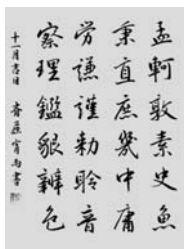 孟軻敦素史魚
秉直庶幾中庸
勞謙謹勅聆音
察理鑑貌辨色
十一月吉日